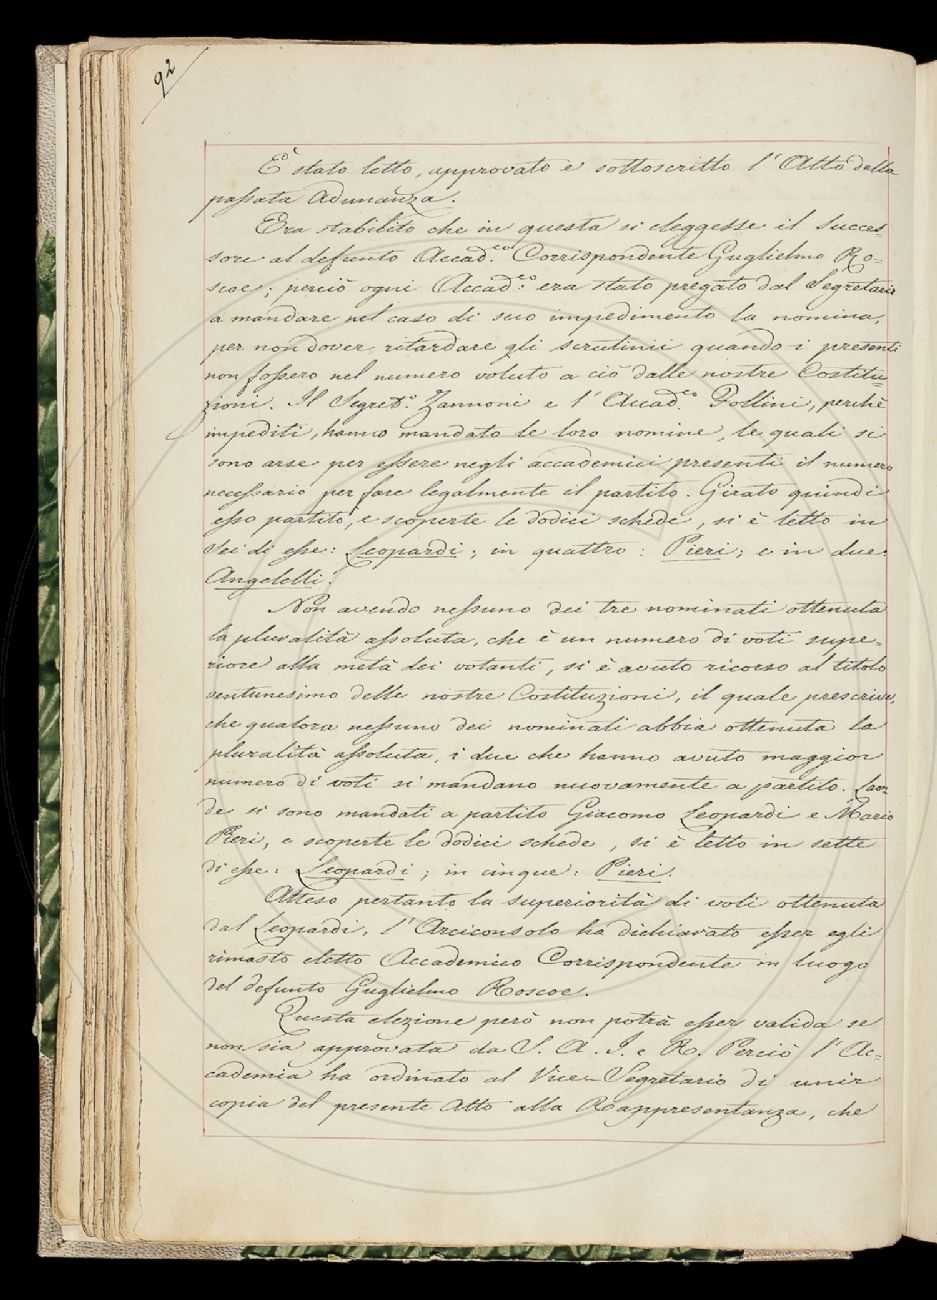 92
È stato letto, approvato e sottoscritto l'Atto della
passata Adunanza.
Era stabilito che in questa si eleggesse il succes=
sore al defunto Accad.co Corrispondente Guglielmo Ro=
scoe; perciò ogni Accad.co era stato pregato dal Segretario
a mandare nel caso di suo impedimento la nomina,
per non dover ritardare gli scrutinii quando i presenti
non fossero nel numero voluto a ciò dalle nostre Costitu=
zioni. Il Segret.o Zannoni e l'Accad.co Pollini, perchè
impediti, hanno mandato le loro nomine, le quali si
sono arse per essere negli accademici presenti il numero
necessario per fare legalmente il partito. Girato quindi
esso partito, e scoperte le dodici schede, si è letto in
sei di esse: Leopardi; in quattro: Pieri; e in due:
Angelelli.
Non avendo nessuno dei tre nominati ottenuta
la pluralità assoluta, che è un numero di voti supe=
riore alla metà dei votanti, si è avuto ricorso al titolo
ventunesimo delle nostre Costituzioni, il quale prescrive,
che qualora nessuno dei nominati abbia ottenuta la
pluralità assoluta, i due che hanno avuto maggior
numero di voti si mandano nuovamente a partito. Laon=
de si sono mandati a partito Giacomo Leopardi e Mario
Pieri, e scoperte le dodici schede, si è letto in sette
di esse: Leopardi; in cinque: Pieri.
Atteso pertanto la superiorità di voti ottenuta
dal Leopardi, l'Arciconsolo ha dichiarato esser egli
rimasto eletto Accademico Corrispondente in luogo
del defunto Guglielmo Roscoe.
Questa elezione però non potrà esser valida se
non sia approvata da S. A. I. e R. Perciò l'Ac=
cademia ha ordinato al Vice-Segretario di unir
copia del presente Atto alla Rappresentanza, che